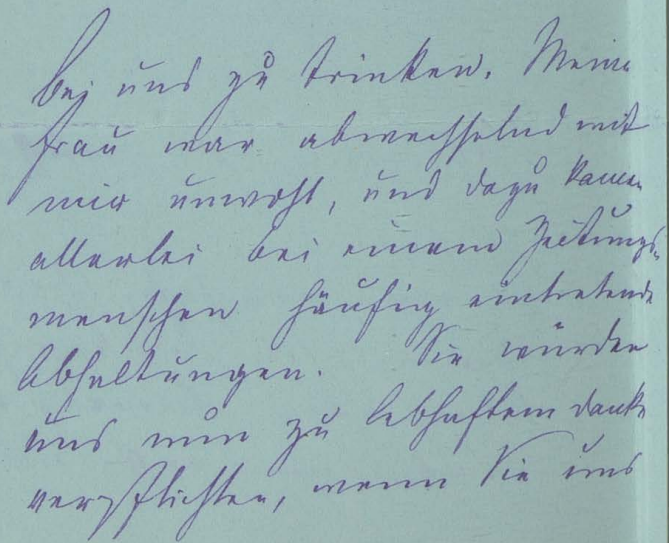 bei uns zu trinken. Meine
Frau war abwechselnd mit
mir unwohl, und dazu kamen
allerlei bei einem Zeitungs-
menschen häufig eintretende
Abhaltungen. Sie würden
uns nun zu lebhaftem Danke
verpflichten, wenn Sie uns